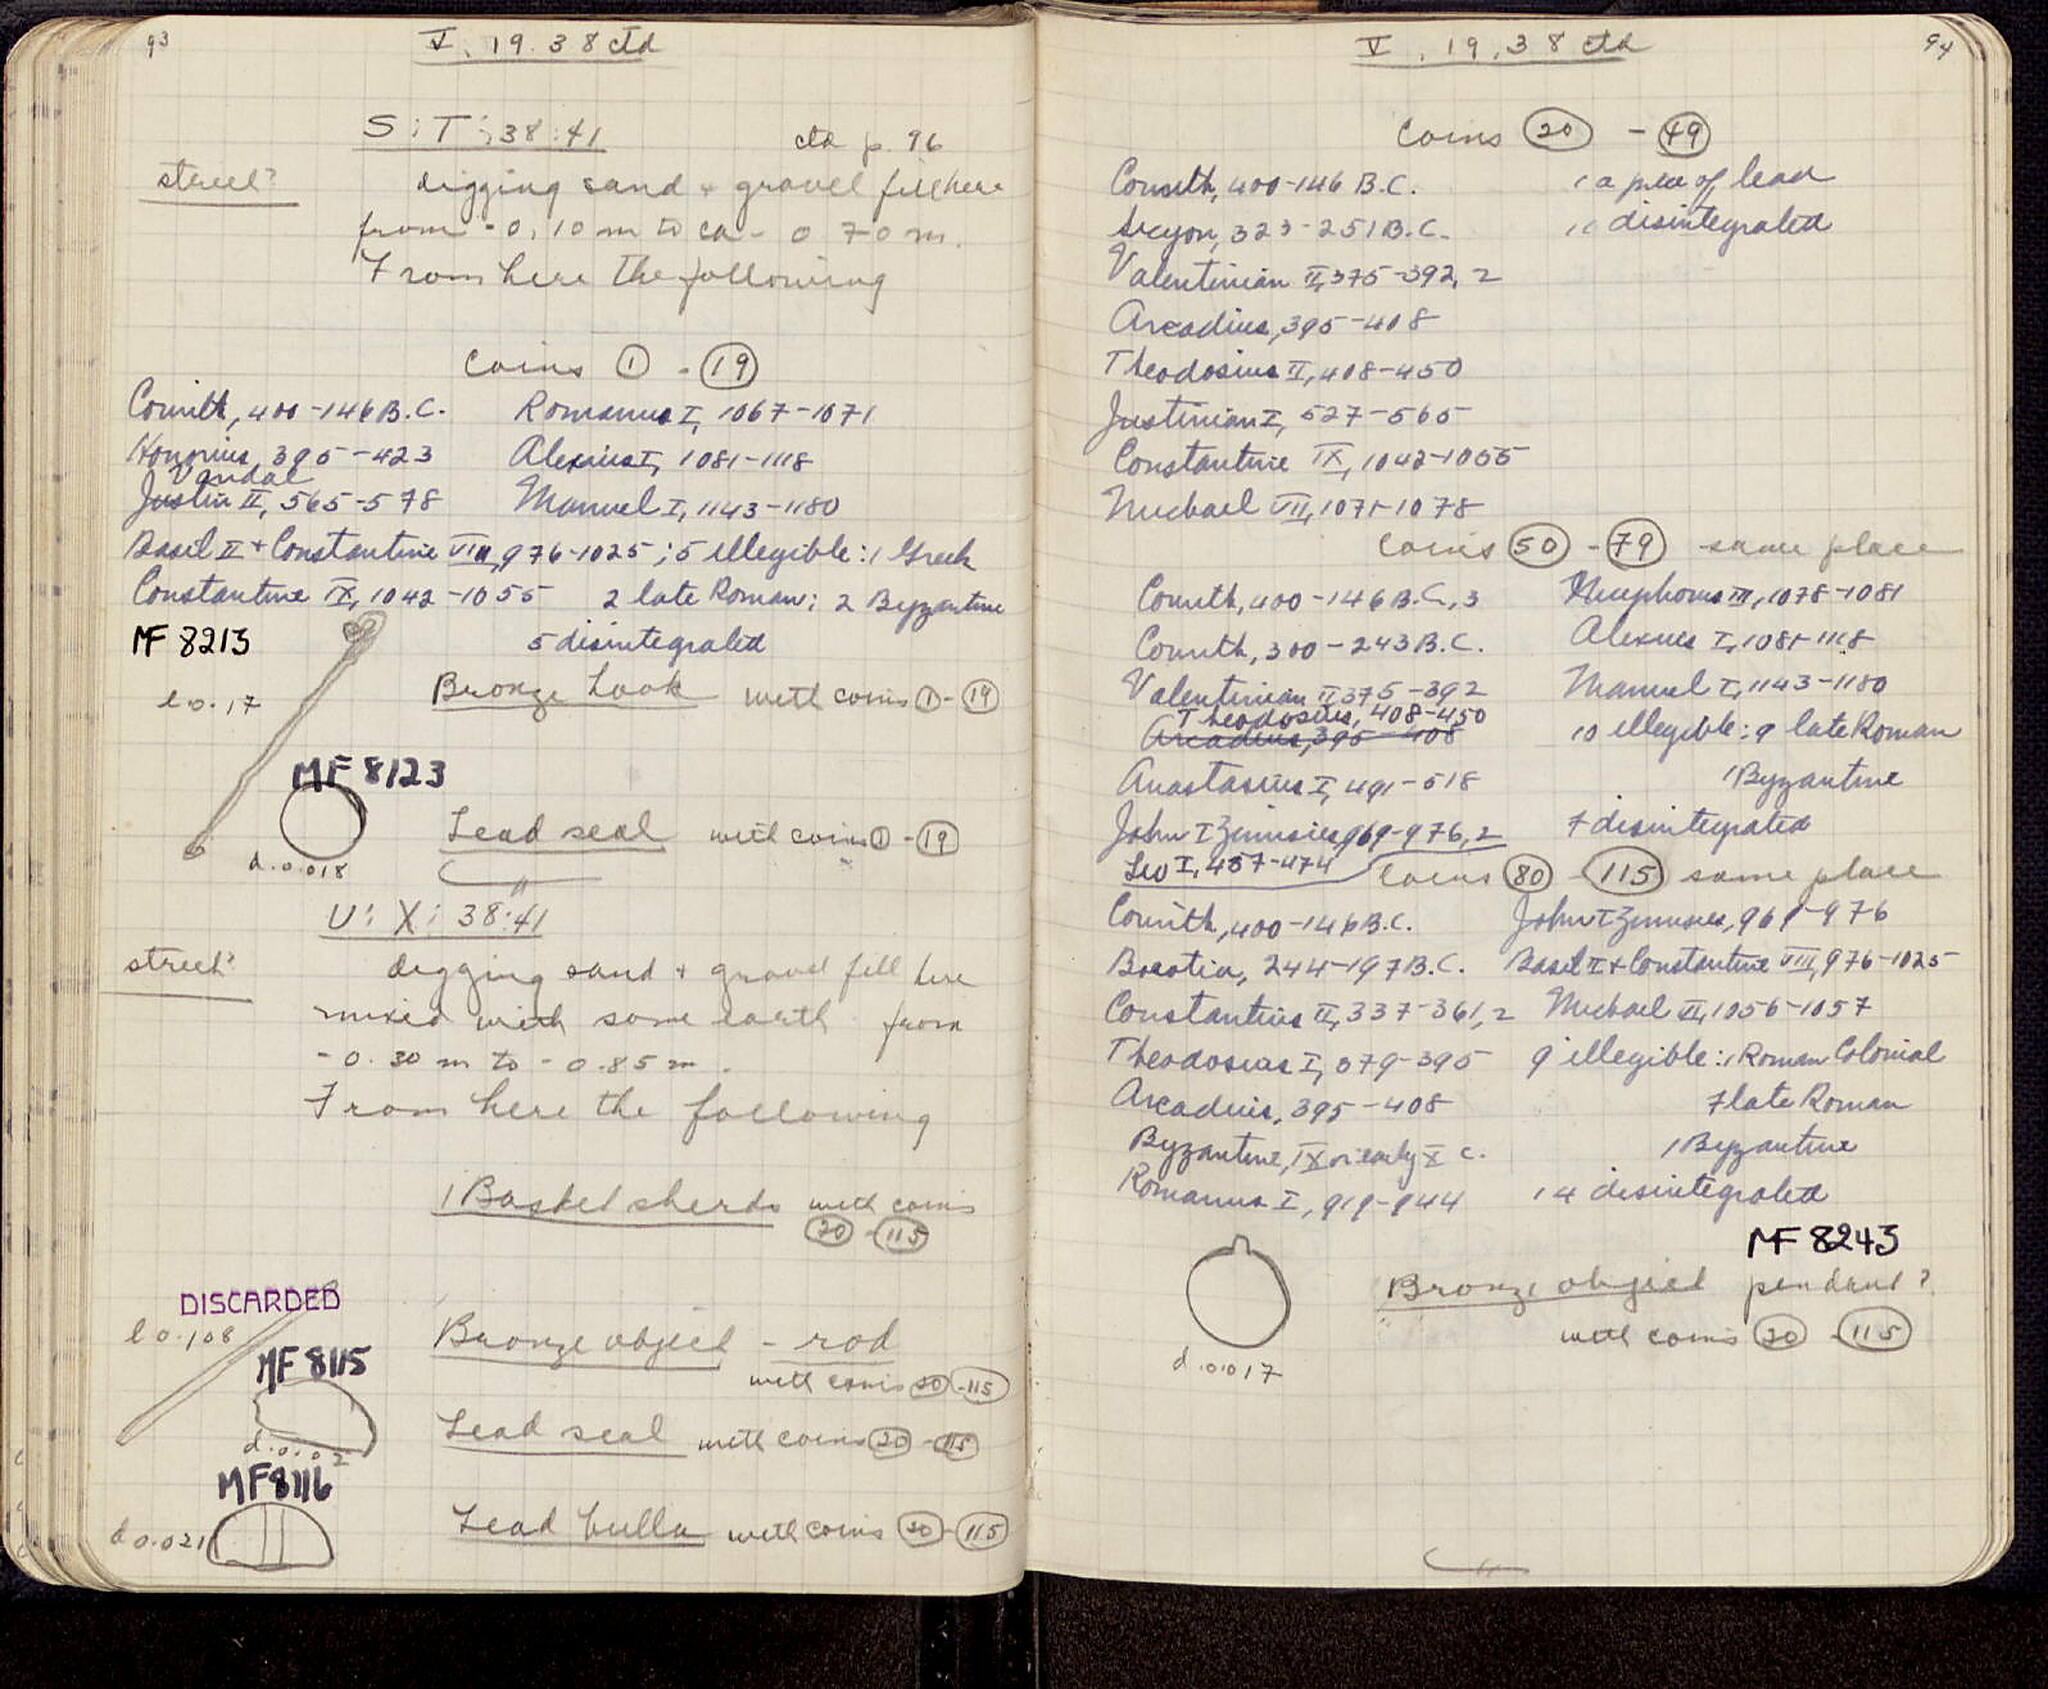 93
V. 19. 38 ctd
S:T:38:41
ctd p. 96
street?
digging sand + gravel fill here
from -0.10 m to ca - 0 70 m.
From here the following
coins 1 - 19
Corinth, 400-146 B.C.
Honorius 395-423
Vandal
Justin II, 565-578
Romanus I, 1067-1071
Alexius I, 1081-1118
Manuel I, 1143-1180
Basil II + Constantine VIII, 976-1025; 5 illegible: 1 Greek
Constantine IX, 1042-1055 2 late Roman; 2 Byzantine
5 disintegrated
MF 8213
l 0.17
Bronze hook with coins 1 - 19
MF 8123
d. 0.018
Lead seal with coins 1 - 19
U:X:38:41
street?
digging sand + gravel fill here
mixed with some earth from
- 0.30 m to - 0.85 m.
From here the following
1 Basket sherds with coins
20 - 115
DISCARDED
l 0.108
Bronze object - rod
with coins 20 - 115
MF 8115
d. 0.02
Lead seal with coins 20 - 115
MF 8116
d 0.021
Lead bulla with coins 20 - 115
94
V, 19, 38 ctd
coins 20 - 49
Corinth, 400-146 B.C.
Sicyon, 323-251 B.C.
Valentinian II, 375-392, 2
Arcadius, 395-408
Theodosius II, 408-450
Justinian I, 527-565
Constantine IX, 1042-1055
Michael VII, 1071-1078
1 a piece of lead
11 disintegrated
coins 50 - 79 same place
Corinth, 400-146 B.C., 3
Corinth, 300-243 B.C.
Valentinian II 375-392
Theodosius, 408-450
Arcadius, 395-408
Anastasius I, 491-518
John I Zimisces, 969-976, 2
Leo I, 457-474
Nicephorus III, 1078-1081
Alexius I, 1081-1118
Manuel I, 1143-1180
10 illegible: 9 late Roman
1 Byzantine
7 disintegrated
coins 80 - 115 same place
Corinth, 400-146 B.C.
Boeotia, 244-197 B.C.
Constantius II, 337-361, 2
Theodosius I, 379-395
Arcadius, 395-408
Byzantine, IX or early X c.
Romanus I, 919-944
John I Zimisces, 969-976
Basil II + Constantine VIII, 976-1025
Michael VI, 1056-1057
9 illegible: 1 Roman Colonial
7 late Roman
1 Byzantine
14 disintegrated
MF 8243
Bronze object pendant?
with coins 20 - 115
d. 0.017